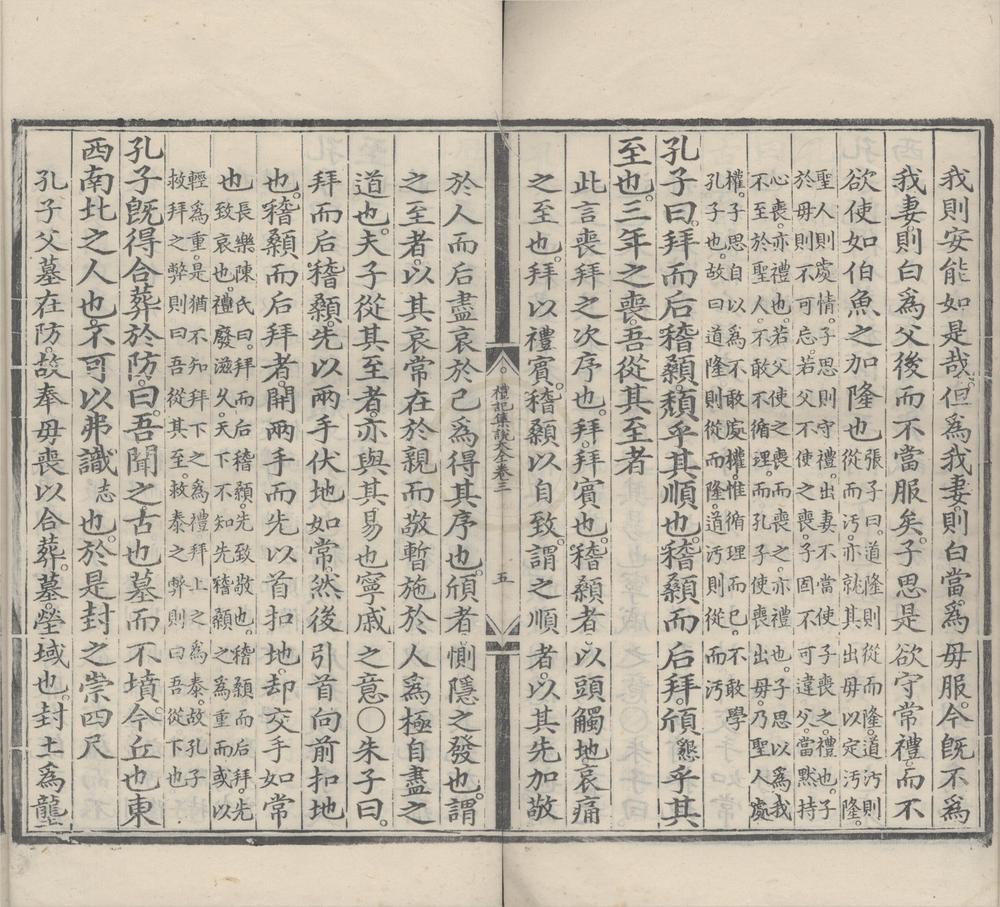 我則安能如是哉。但爲我妻。則白當爲母服。今旣不爲
我妻。則白爲父後而不當服矣。子思是欲守常禮。而不
欲使如伯魚之加隆也
張子曰。道隆則從而隆。道汚則
從而汚。亦就其出母以定汚隆。
聖人則處情。子思則守禮。出妻不當使子喪之。禮也。子
於母則不可忘。若父不使之喪。子固不可違父。當黙持
心喪。亦禮也。若父使之喪而喪之。亦禮也。子思以爲我
不至於聖人。不敢不循理。而孔子使喪出母。乃聖人處
權。子思自以爲不敢處權。惟循理而已。不敢學
孔子也。故曰道隆則從而隆。道汚則從而汚
孔子曰。拜而后稽顙。頽乎其順也。稽顙而后拜。頎
懇
乎其
至也。三年之喪。吾從其至者
此言喪拜之次序也。拜。拜賓也。稽顙者。以頭觸地。哀痛
之至也。拜以禮賓。稽顙以自致。謂之順者。以其先加敬
禮記集說大全卷三
五
於人而后盡哀於己。爲得其序也。頎者。惻隱之發也。謂
之至者。以其哀常在於親。而敬暫施於人。爲極自盡之
道也。夫子從其至者。亦與其易也寧戚之意○朱子曰。
拜而后稽顙。先以兩手伏地如常。然後引首向前扣地
也。稽顙而后拜者。開兩手而先以首扣地。却交手如常
也
長樂陳氏曰。拜而后稽顙。先致敬也。稽顙而后拜。先
致哀也。禮廢滋久。天下不知先稽顙之爲重。而或以
輕爲重。是猶不知拜下之爲禮。拜上之爲泰。故孔子
救拜之弊則曰吾從其至。救泰之弊則曰吾從下也
孔子旣得合葬於防。曰。吾聞之。古也墓而不墳。今丘也。東
西南北之人也。不可以弗識
志
也。於是封之。崇四尺
孔子父墓在防。故奉母喪以合葬。墓。塋域也。封土爲壟